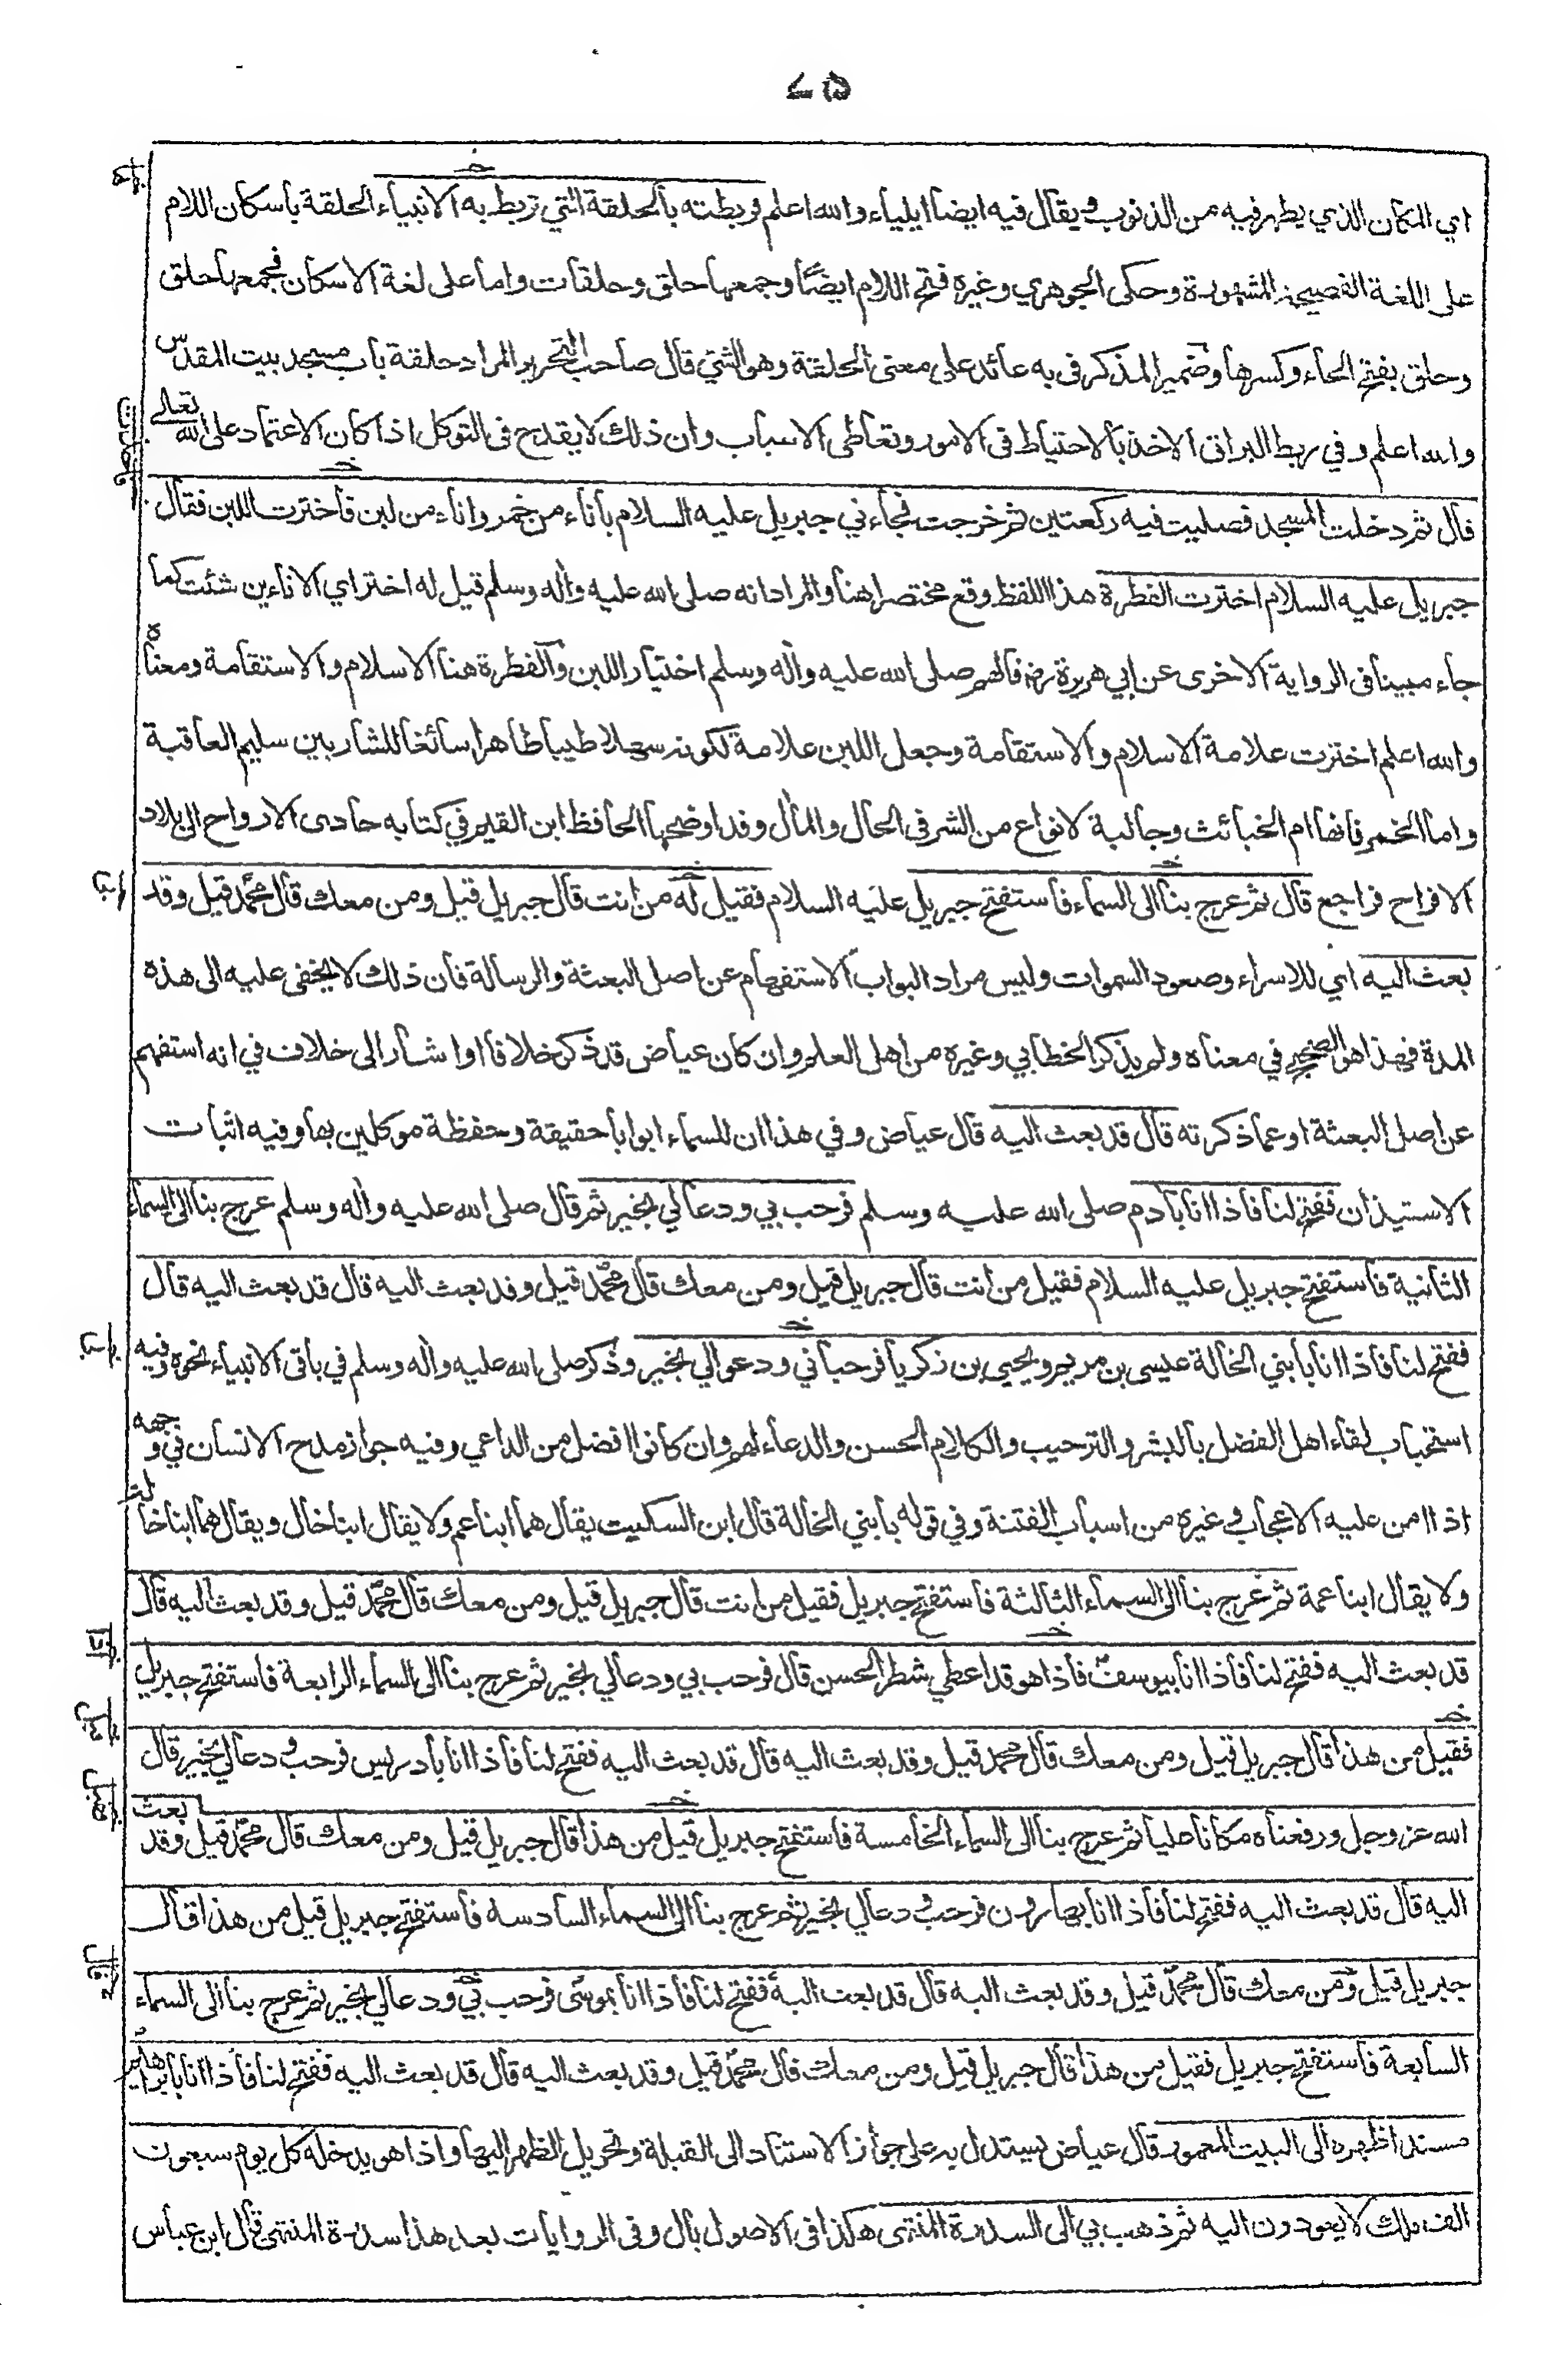 ٧٥
اي المكان الذي يطهر فيه من الذنوب ويقال فيه ايضا ايلياء والله اعلم فربطته بالحلقة التي تربط به الانبياء الحلقة باسكان اللام
على اللغة الفصيحة المشهورة وحكى الجوهري وغيره فتح اللام ايضًا وجمعها حلق وحلقات واما على لغة الاسكان فجمعها حلق
وحلق بفتح الحاء وكسرها وضمير المذكر في به عائد على معنى الحلقة وهو الشئ قال صاحب التحرير المراد حلقة باب مسجد بيت المقدس
والله اعلم وفي ربط البراق الاخذ بالاحتياط في الامور وتعاطى الاسباب وان ذلك لا يقدح في التوكل اذا كان الاعتماد على الله تعالى
قال ثم دخلت المسجد فصليت فيه ركعتين ثم خرجت فجاءني جبريل عليه السلام باناء من خمر واناء من لبن فاخترت اللبن فقال
جبريل عليه السلام اخترت الفطرة هذا اللفظ وقع مختصرا هنا والمراد انه صلى الله عليه واله وسلم قيل له اختر اي الاناءين شئت كما
جاء مبينا في الرواية الاخرى عن ابي هريرة رض فالهم صلى الله عليه واله وسلم اختيار اللبن والفطرة هنا الاسلام والاستقامة ومعناه
والله اعلم اخترت علامة الاسلام والاستقامة وجعل اللبن علامة لكونه سهلا طيبا طاهرا سائغا للشاربين سليم العاقبة
واما الخمر فانها ام الخبائث وجالبة لانواع من الشر في الحال والمال وقد اوضحها الحافظ ابن القيم في كتابه حادى الارواح الى بلاد
الافراح فراجع قال ثم عرج بنا الى السماء فاستفتح جبريل عليه السلام فقيل له من انت قال جبريل قيل ومن معك قال محمد قيل وقد
بعث اليه اي للاسراء وصعود السموات وليس مراد البواب الاستفهام عن اصل البعثة والرسالة فان ذلك لا يخفى عليه الى هذه
المدة فهذا هو الصحيح في معناه ولم يذكر الخطابي وغيره من اهل العلم وان كان عياض قد ذكر خلافا او اشار الى خلاف في انه استفهم
عن اصل البعثة او عما ذكرته قال قد بعث اليه قال عياض وفي هذا ان للسماء ابوابا حقيقة وحفظة موكلين بها وفيه اثبات
الاستيذان ففتح لنا فاذا انا بادم صلى الله عليه وسلم فرحب بي ودعا لي بخير ثم قال صلى الله عليه واله وسلم عرج بنا الى السماء
الثانية فاستفتح جبريل عليه السلام فقيل من انت قال جبريل قيل ومن معك قال محمد قيل وقد بعث اليه قال قد بعث اليه قال
ففتح لنا فاذا انا بابني الخالة عيسى بن مريم ويحيى بن زكريا فرحباني ودعوا لي بخير وذكر صلى الله عليه واله وسلم في باقي الانبياء نحوه وفيه
استحباب لقاء اهل الفضل بالبشر والترحيب والكلام الحسن والدعاء لهم وان كانوا افضل من الداعي وفيه جواز مدح الانسان في وجهه
اذا امن عليه الاعجاب وغيره من اسباب الفتنة وفي قوله بابني الخالة قال ابن السكيت يقال هما ابنا عم ولا يقال ابنا خال ويقال هما ابنا خالة
ولا يقال ابنا عمة ثم عرج بنا الى السماء الثالثة فاستفتح جبريل فقيل من انت قال جبريل قيل ومن معك قال محمد قيل وقد بعث اليه قال
قد بعث اليه ففتح لنا فاذا انا بيوسف فاذا هو قد اعطي شطر الحسن قال فرحب بي ودعا لي بخير ثم عرج بنا الى السماء الرابعة فاستفتح جبريل
فقيل من هذا قال جبريل قيل ومن معك قال محمد قيل وقد بعث اليه قال قد بعث اليه ففتح لنا فاذا انا بادريس فرحب ودعا لي بخير قال
الله عز وجل ورفعناه مكانا عليا ثم عرج بنا الى السماء الخامسة فاستفتح جبريل قيل من هذا قال جبريل قيل ومن معك قال محمد قيل وقد بعث
اليه قال قد بعث اليه ففتح لنا فاذا انا بهارون فرحب ودعا لي بخير ثم عرج بنا الى السماء السادسة فاستفتح جبريل قيل من هذا قال
جبريل قيل ومن معك قال محمد قيل وقد بعث اليه قال قد بعث اليه ففتح لنا فاذا انا بموسى فرحب بي ودعا لي بخير ثم عرج بنا الى السماء
السابعة فاستفتح جبريل فقيل من هذا قال جبريل قيل ومن معك قال محمد قيل وقد بعث اليه قال قد بعث اليه ففتح لنا فاذا انا بابراهيم
مسندا ظهره الى البيت المعمور قال عياض يستدل به على جواز الاستناد الى القبلة وتحويل الظهر اليها واذا هو يدخله كل يوم سبعون
الف ملك لا يعودون اليه ثم ذهب بي الى السدرة المنتهى هكذا في الاصول بال وفي الروايات بعد هذا سدرة المنتهى قال ابن عباس